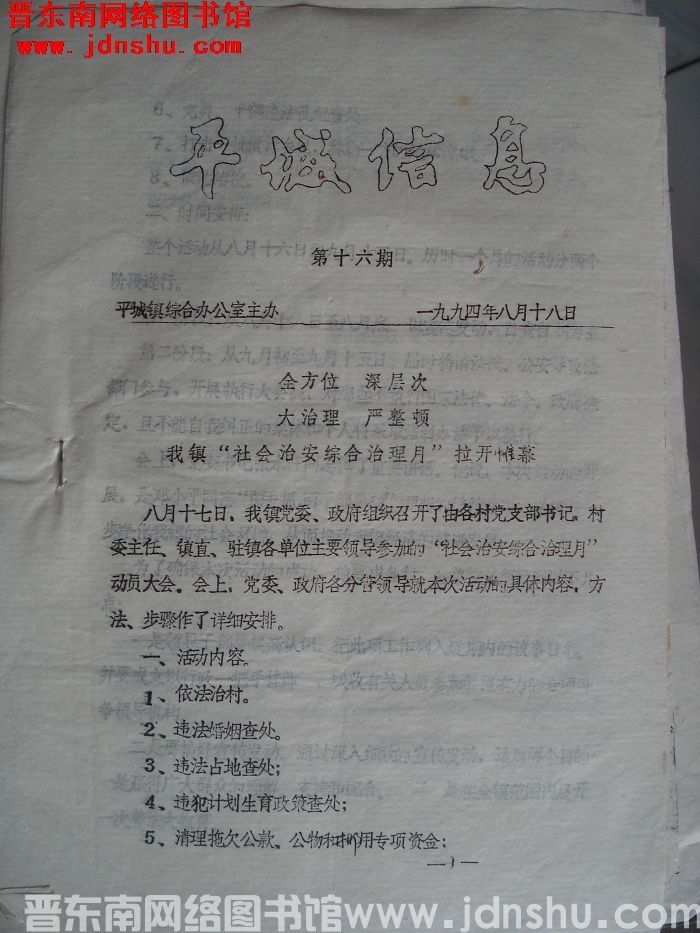 晋东南网络图书馆
www.jdnshu.com
平城信息
第十六期
平城镇综合办公室主办 一九九四年八月十八日
全方位 深层次
大治理 严整顿
我镇“社会治安综合治理月”拉开帷幕
八月十七日，我镇党委、政府组织召开了由各村党支部书记，村
委主任、镇直、驻镇各单位主要领导参加的“社会治安综合治理月”
动员大会。会上，党委、政府各分管领导就本次活动的具体内容，方
法、步骤作了详细安排。
一、活动内容。
1、依法治村。
2、违法婚姻查处。
3、违法占地查处；
4、违犯计划生育政策查处；
5、清理拖欠公款、公物和挪用专项资金；
—1—
晋东南网络图书馆www.jdnshu.com